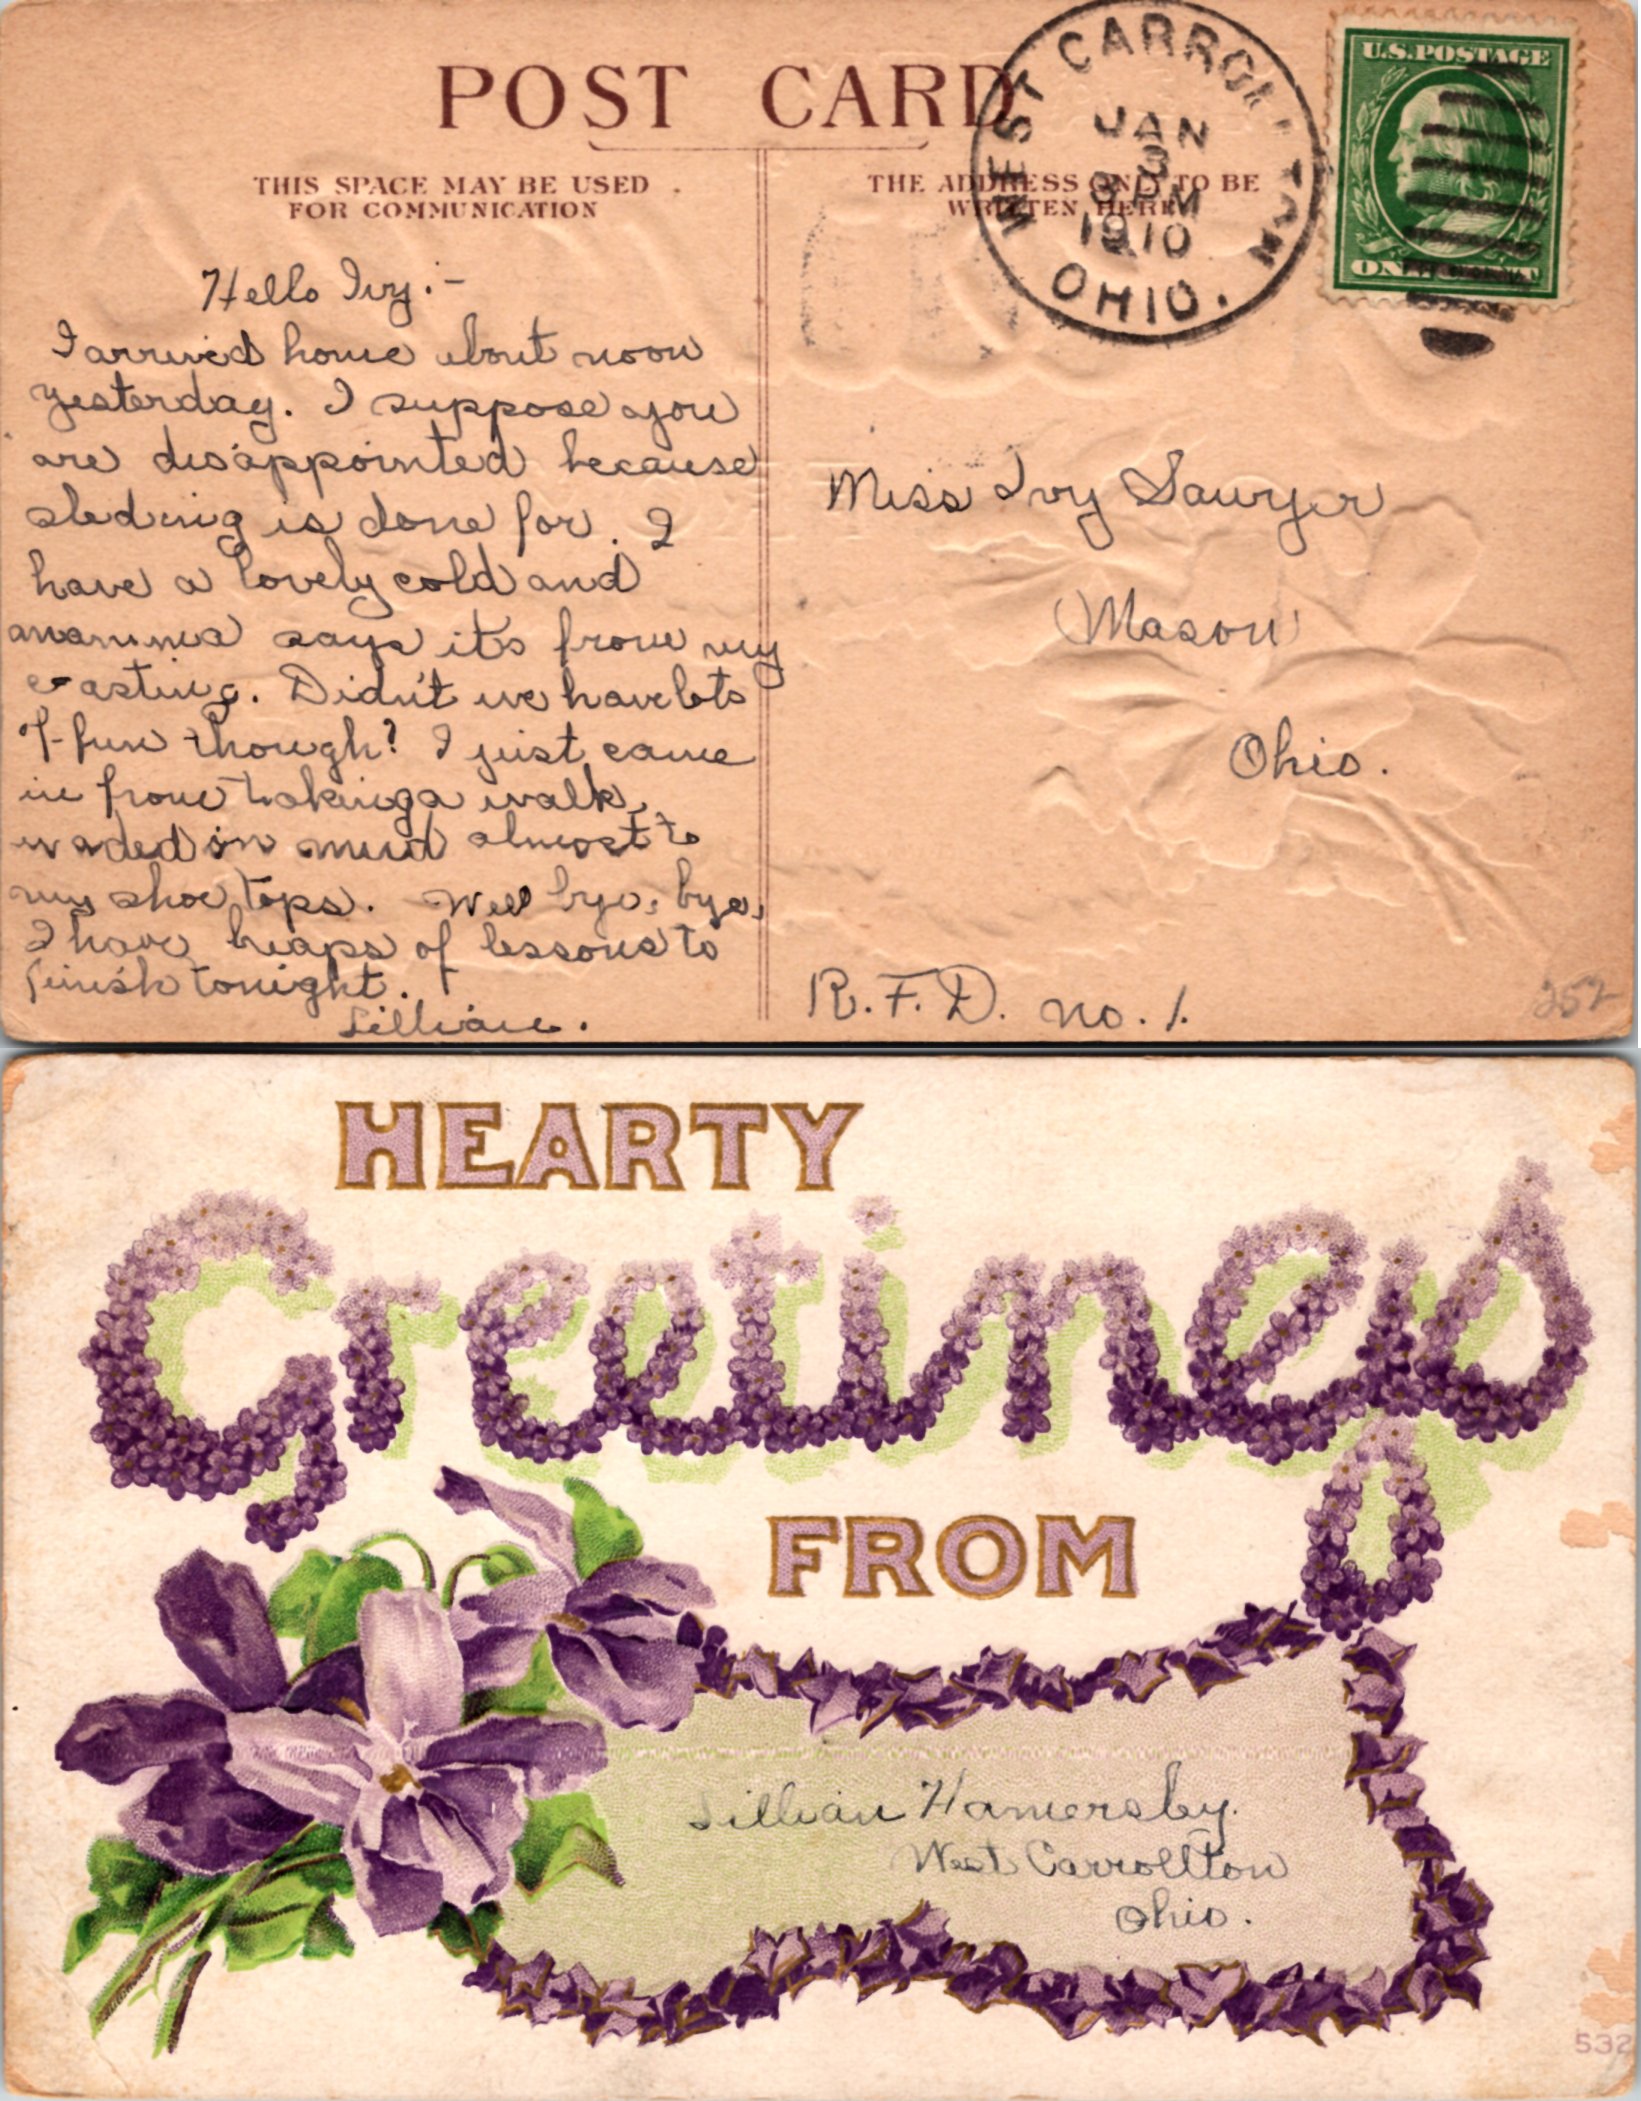 POST CARD
THIS SPACE MAY BE USED
FOR COMMUNICATION
THE ADDRESS ONLY TO BE
WRITTEN HERE
WEST CARROLLTON
JAN
3
PM
1910
OHIO.
U.S. POSTAGE
ONE
Hello Ivy:-
I arrived home about noon
yesterday. I suppose you
are disappointed because
sleding is done for. I
have a lovely cold and
mamma says its from my
coasting. Didn't we have lots
of fun though? I just came
in from taking a walk,
waded in mud almost to
my shoe tops. Well bye, bye,
I have heaps of lessons to
finish tonight.
Lillian.
Miss Ivy Sawyer
Mason
Ohio.
R.F.D. no. 1.
252
HEARTY
Greetings
FROM
Lillian Hamersley.
West Carrollton
Ohio.
532